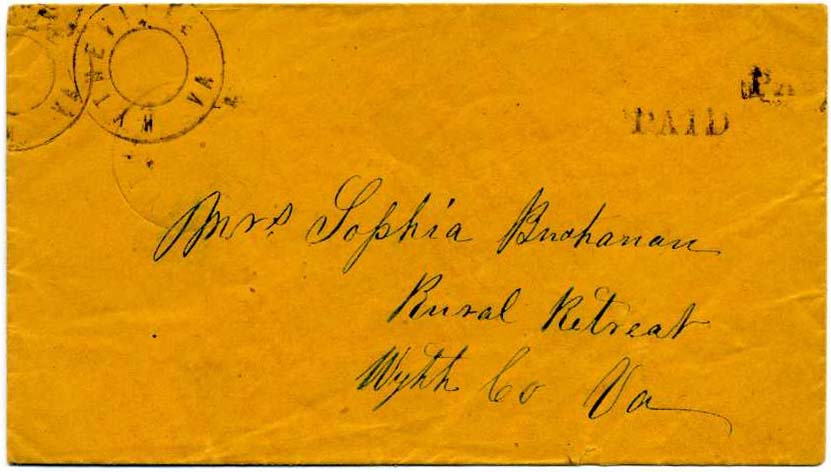 WYTHEVILLE VA
VA
PAID
PAI
Mrs. Sophia Buchanan
Rural Retreat
Wyth Co Va